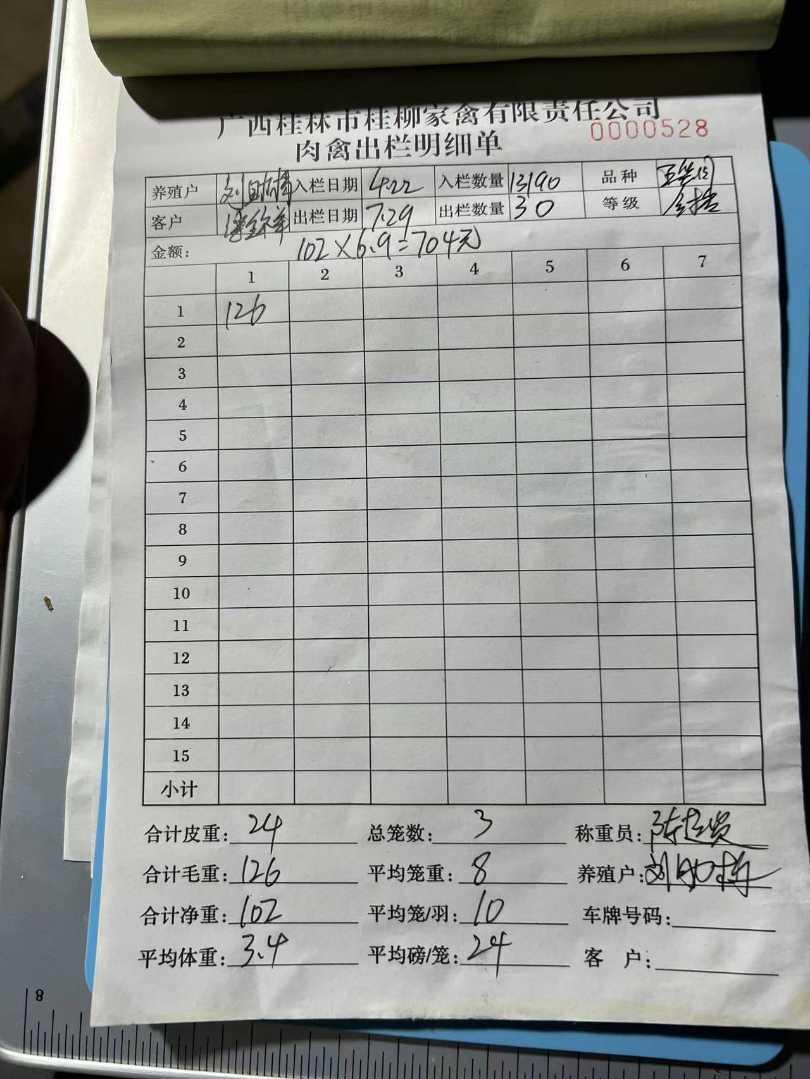 广西桂林市桂柳家禽有限责任公司
肉禽出栏明细单 0000528
养殖户 入栏日期 4.22 入栏数量 13190 品种
客户 出栏日期 7.29 出栏数量 30 等级
金额: 102×6.9=704元
1 2 3 4 5 6 7
1 126
2
3
4
5
6
7
8
9
10
11
12
13
14
15
小计
合计皮重: 24 总笼数: 3 称重员:
合计毛重: 126 平均笼重: 8 养殖户: 刘
合计净重: 102 平均笼/羽: 10 车牌号码:
平均体重: 3.4 平均磅/笼: 24 客 户:
8